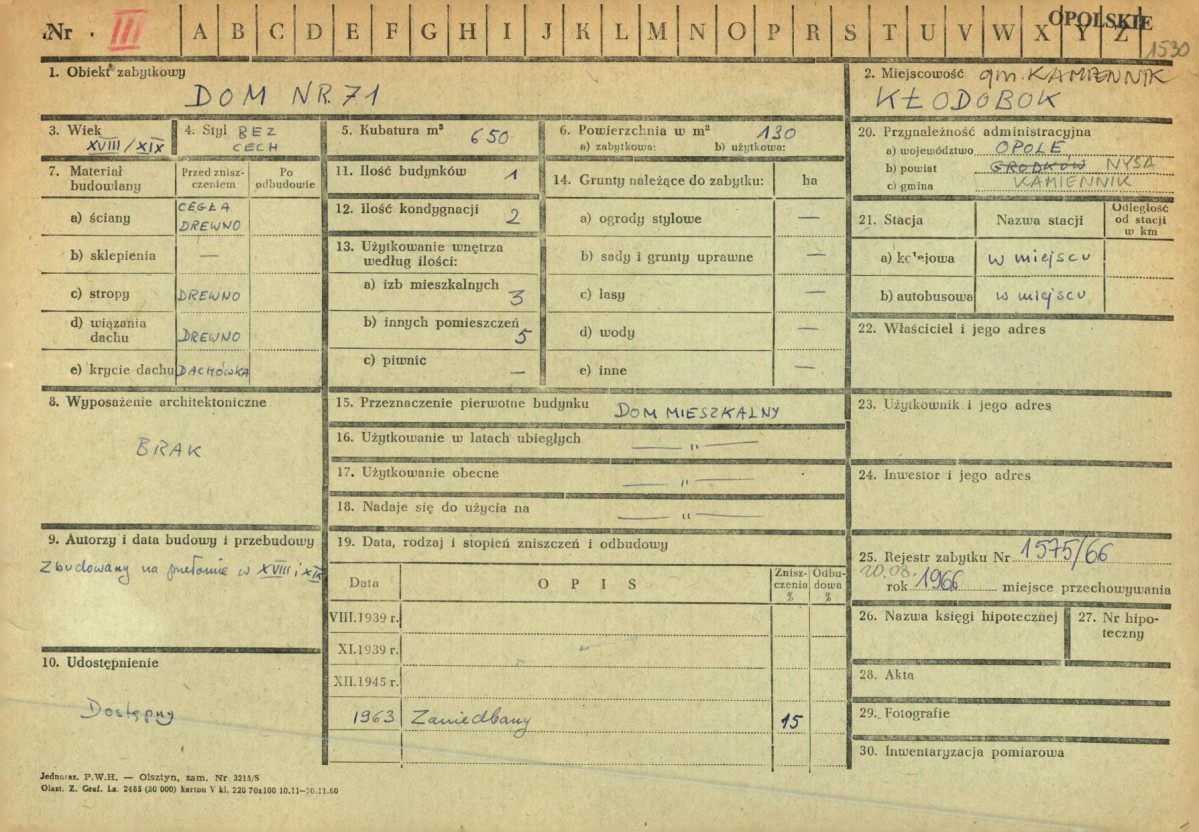 Nr III A B C D E F G H I J K L M N O P R S T U V W X Y Z OPOLSKIE
1530
1. Obiekt zabytkowy
DOM NR 71
2. Miejscowość gm. KAMIENNIK
KŁODOBOK
3. Wiek
XVIII/XIX
4. Styl BEZ
CECH
5. Kubatura m³ 650
6. Powierzchnia w m² 130
a) zabytkowa: b) użytkowa:
20. Przynależność administracyjna
a) województwo OPOLE
b) powiat GRODKÓW NYSA
c) gmina KAMIENNIK
7. Materiał budowlany
Przed znisz-
czeniem
Po
odbudowie
a) ściany CEGŁA
DREWNO
b) sklepienia —
c) stropy DREWNO
d) wiązania
dachu DREWNO
e) krycie dachu DACHÓWKA
11. Ilość budynków 1
12. Ilość kondygnacji 2
13. Użytkowanie wnętrza
według ilości:
a) izb mieszkalnych 3
b) innych pomieszczeń 5
c) piwnic —
14. Grunty należące do zabytku: ha
a) ogrody stylowe —
b) sady i grunty uprawne —
c) lasy —
d) wody —
e) inne —
21. Stacja Nazwa stacji
Odległość
od stacji
w km
a) kolejowa w miejscu
b) autobusowa w miejscu
22. Właściciel i jego adres
8. Wyposażenie architektoniczne
BRAK
15. Przeznaczenie pierwotne budynku DOM MIESZKALNY
16. Użytkowanie w latach ubiegłych — " —
17. Użytkowanie obecne — " —
18. Nadaje się do użycia na — " —
23. Użytkownik i jego adres
24. Inwestor i jego adres
9. Autorzy i data budowy i przebudowy
Zbudowany na przełomie w XVIII i XIX
10. Udostępnienie
Dostępny
19. Data, rodzaj i stopień zniszczeń i odbudowy
Data OPIS
Znisz-
czenia
%
Odbu-
dowa
%
VIII.1939 r.
XI.1939 r.
XII.1945 r.
1963 Zaniedbany 15
25. Rejestr zabytku Nr 1575/66
20.08.
rok 1966 miejsce przechowywania
26. Nazwa księgi hipotecznej
27. Nr hipo-
teczny
28. Akta
29. Fotografie
30. Inwentaryzacja pomiarowa
Jednoraz. P.W.H. — Olsztyn, zam. Nr 3215/S
Olszt. Z. Graf. Lz. 2485 (30 000) karton V kl. 220 70x100 10.11—30.11.60